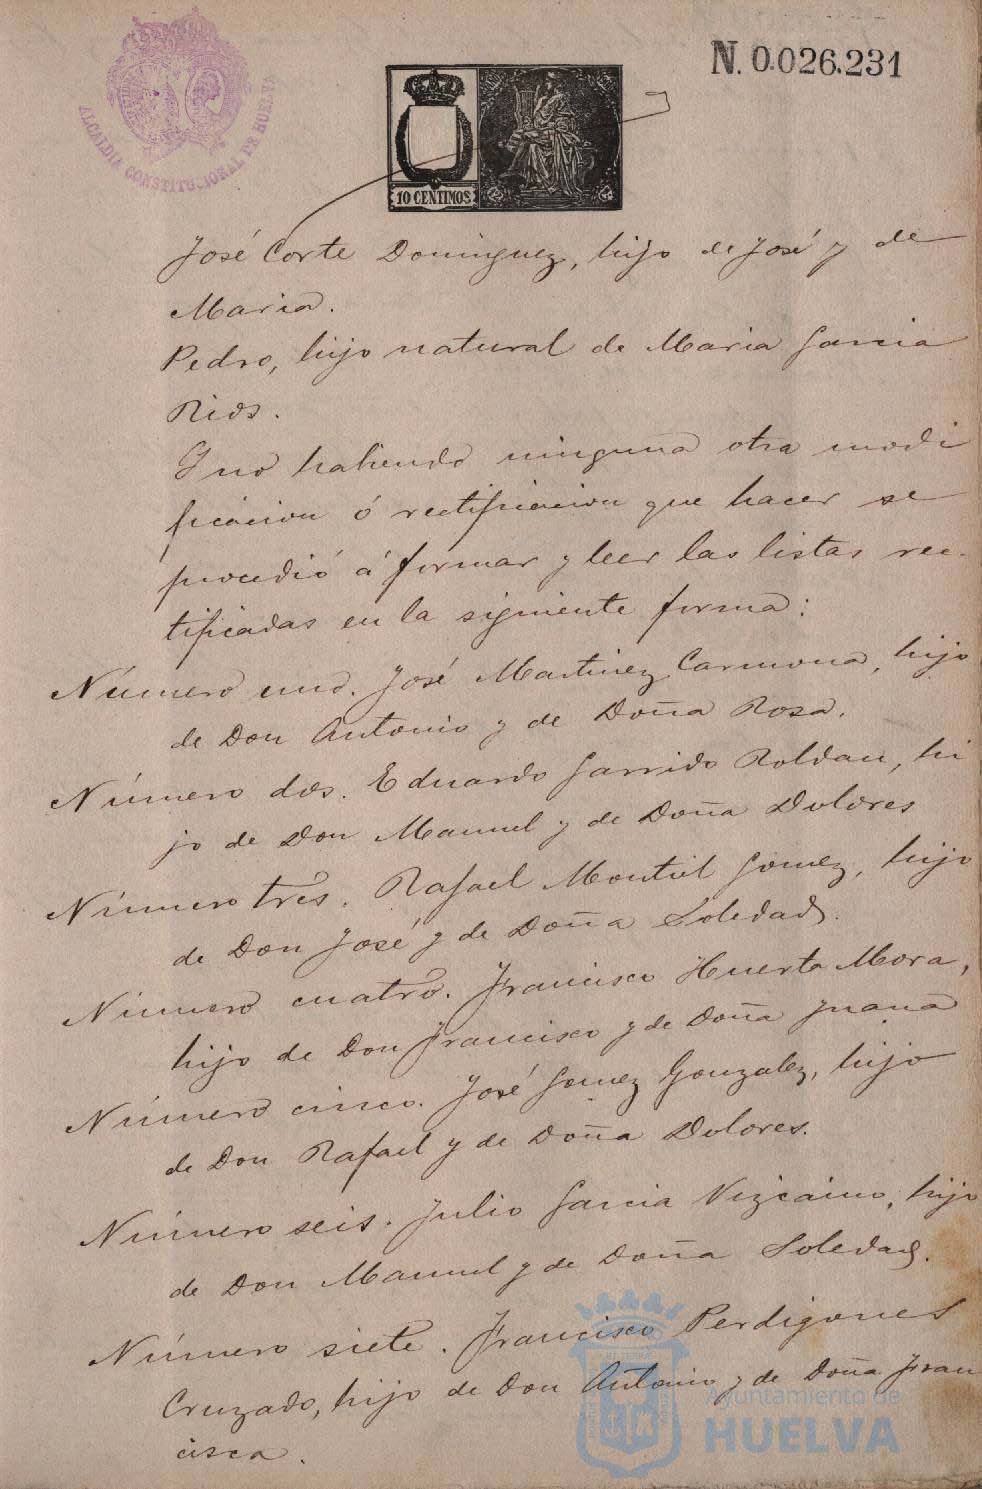 ALCALDIA CONSTITUCIONAL DE HUELVA
N. 0.026.231
10 CENTIMOS
José Corte Dominguez, hijo de José y de
Maria.
Pedro, hijo natural de Maria Garcia
Rios.
Y no habiendo ninguna otra modi
ficacion ó rectificacion que hacer se
procedió á formar y leer las listas rec-
tificadas en la siguiente forma:
Número uno. José Martinez Carmona, hijo
de Don Antonio y de Doña Rosa.
Número dos. Eduardo Garrido Roldan, hi
jo de Don Manuel y de Doña Dolores
Número tres. Rafael Montiel Gomez, hijo
de Don José y de Doña Soledad.
Número cuatro. Francisco Huerta Mora,
hijo de Don Francisco y de Doña Juana
Número cinco. José Gomez Gonzalez, hijo
de Don Rafael y de Doña Dolores.
Número seis. Julio Garcia Vizcaino, hijo
de Don Manuel y de Doña Soledad.
Número siete. Francisco Perdigones
Cruzado, hijo de Don Antonio y de Doña Fran
cisca.
Ayuntamiento de
HUELVA